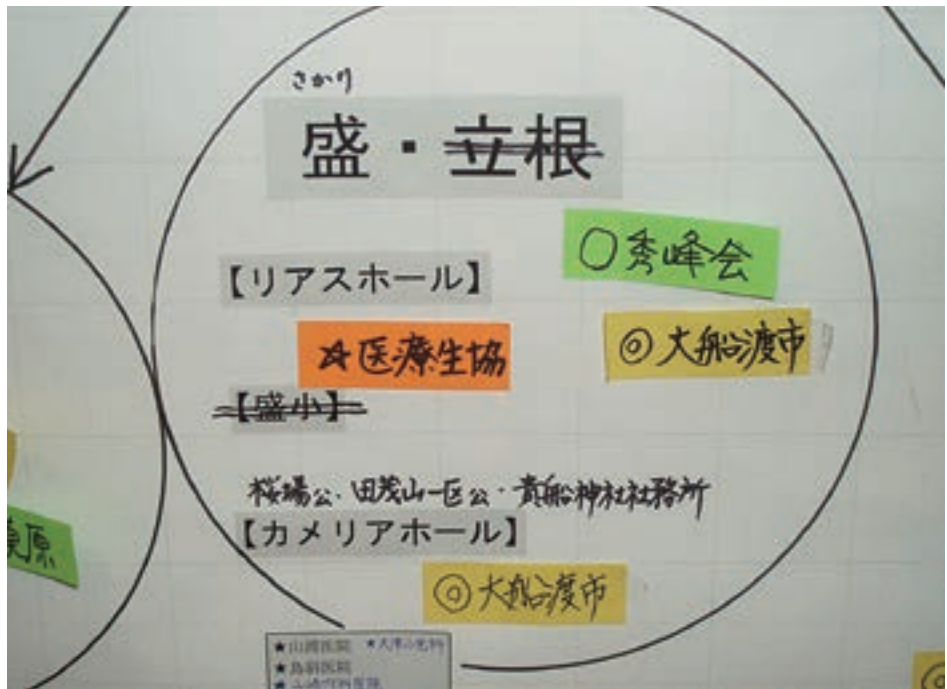 さかり
盛・立根
○秀峰会
【リアスホール】
☆医療生協
◎大船渡市
【盛小】
桜場公・田茂山一区公・貴船神社社務所
【カメリアホール】
◎大船渡市
原
★鳥羽医院